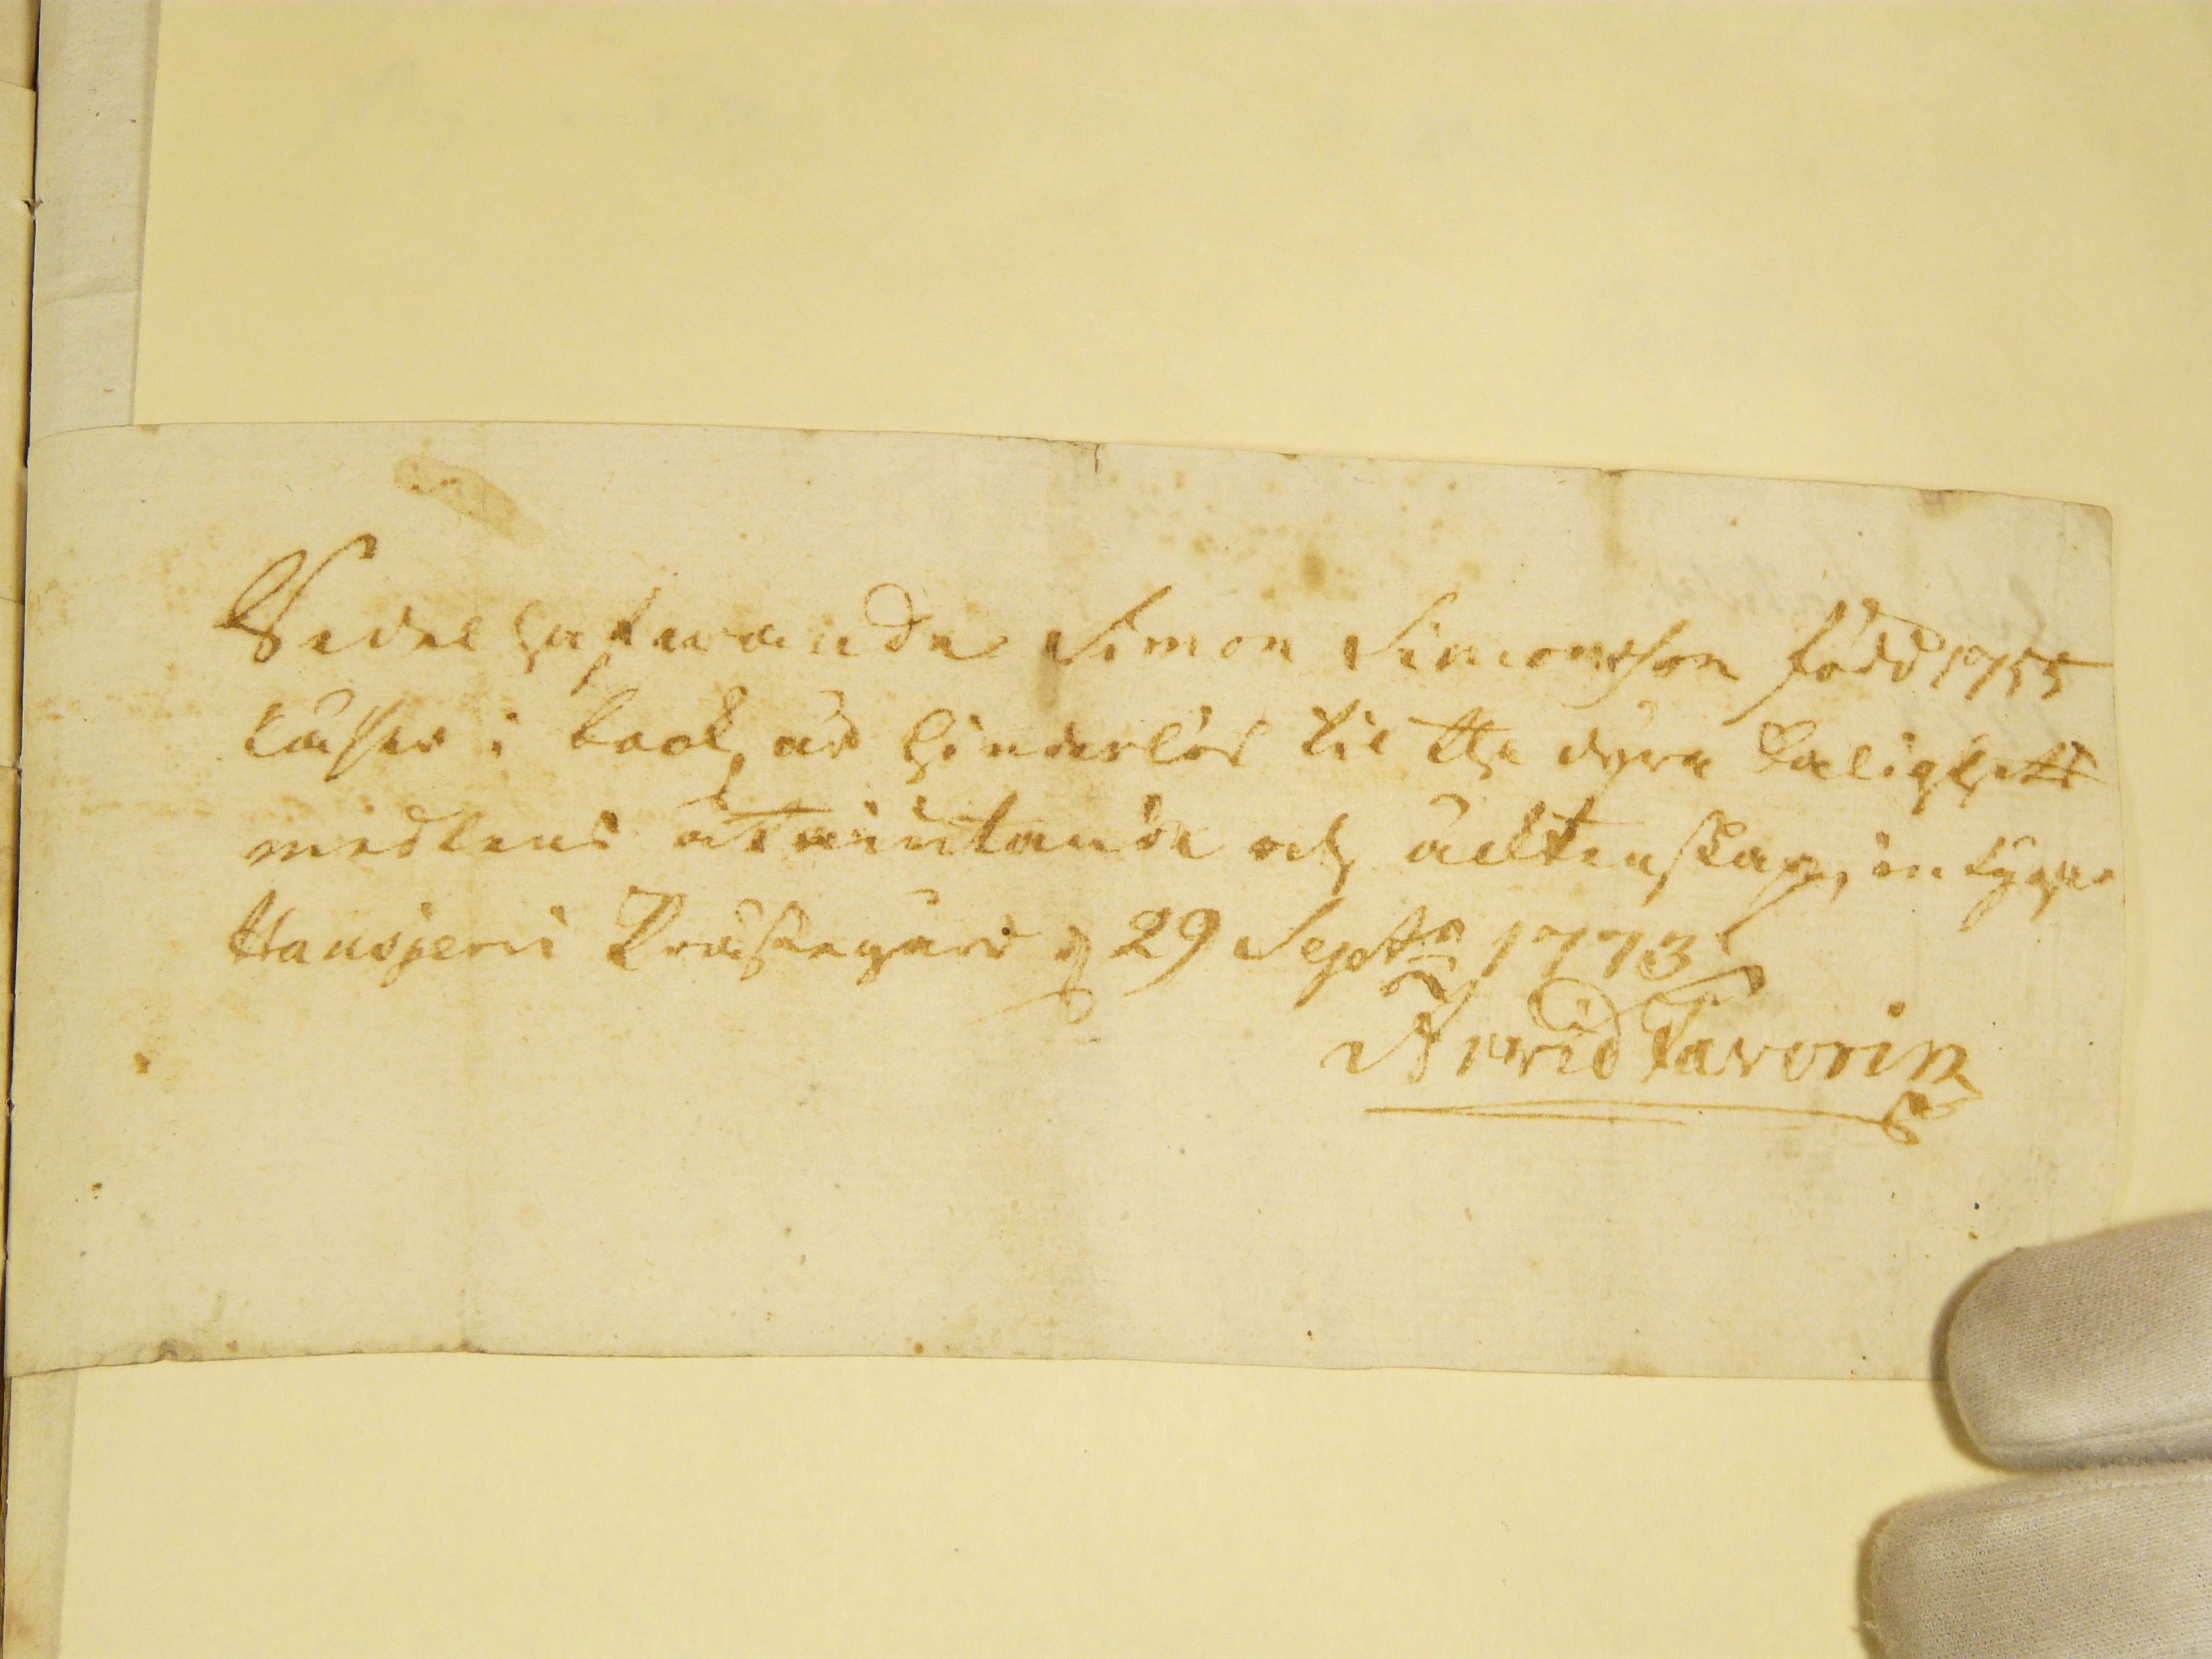 Sedelhafwande Simon Simonsson född 1755
läser i book, är hinderlös til the dyra Salighets
medlens åtniutande och äcktenskap, intygar
Hausjervi Prästegård d 29 Septr 1773
Arvid Favorin